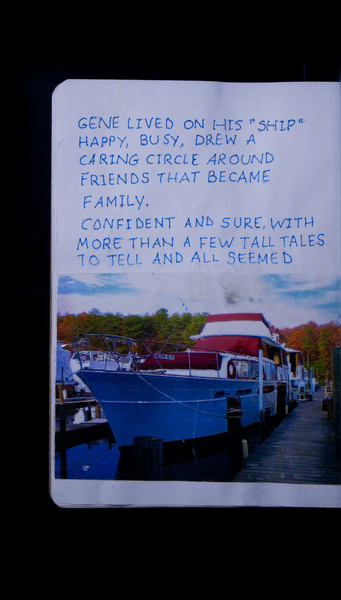 GENE LIVED ON HIS "SHIP"
HAPPY, BUSY, DREW A
CARING CIRCLE AROUND
FRIENDS THAT BECAME
FAMILY.
CONFIDENT AND SURE, WITH
MORE THAN A FEW TALL TALES
TO TELL AND ALL SEEMED